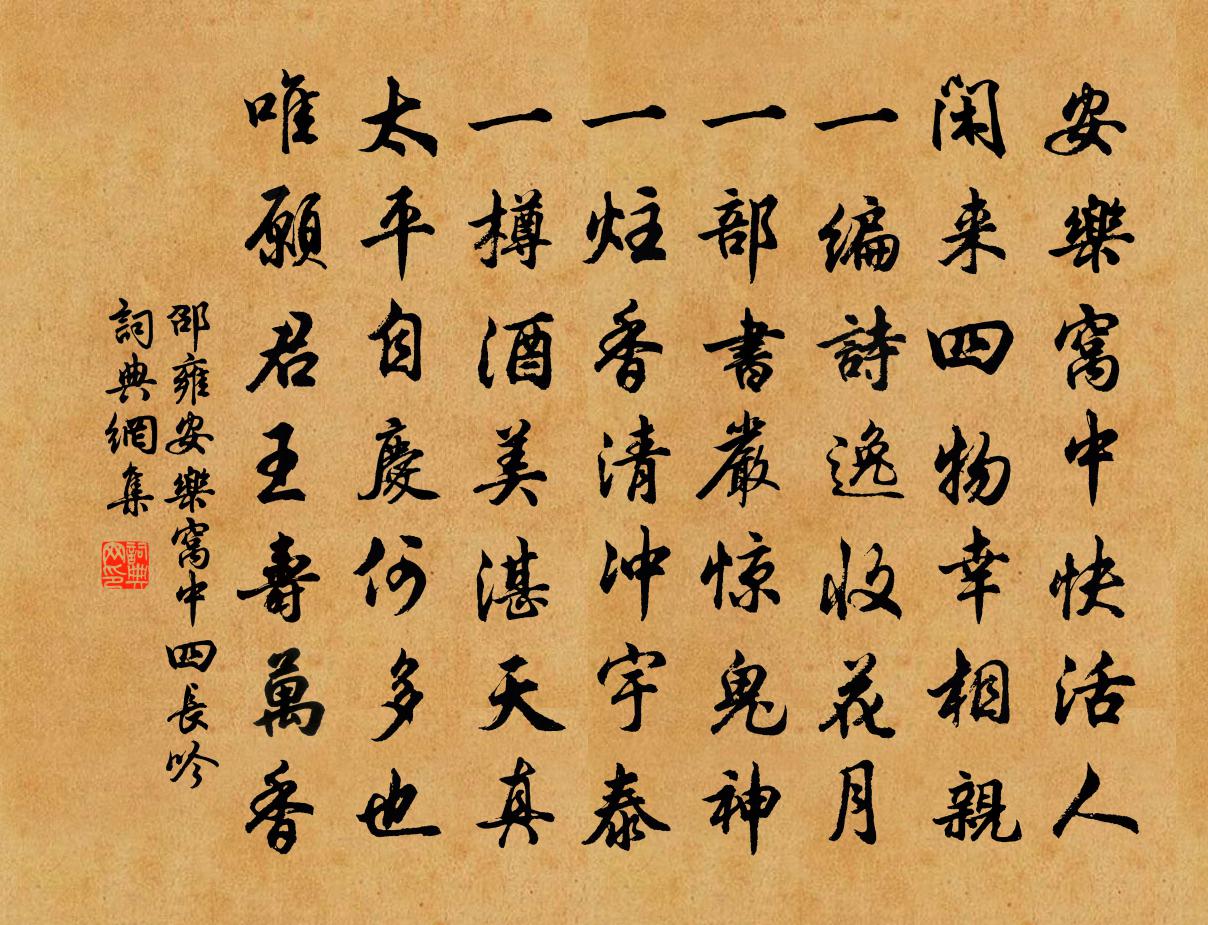 安樂窩中快活人
閑来四物幸相親
一编詩逸收花月
一部書嚴惊鬼神
一炷香清冲宇泰
一樽酒美湛天真
太平自慶何多也
唯願君王壽萬香
邵雍安樂窩中四長吟
詞典網集
詞典网印